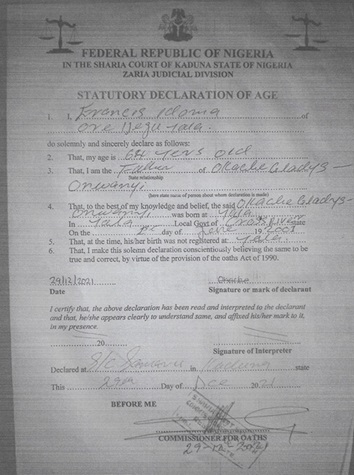 FEDERAL REPUBLIC OF NIGERIA
IN THE SHARIA COURT OF KADUNA STATE OF NIGERIA
ZARIA JUDICIAL DIVISION
STATUTORY DECLARATION OF AGE
1. I, Francis Idoma of
do solemnly and sincerely declare as follows:
2. That, my age is old
3. That, I am the Father of Okache Gladys
State relationship
Onwanyi
(Insert state name of person about whom declaration is made)
4. That, to the best of my knowledge and belief, the said Okache Gladys
Onwanyi was born at Yala
In Yala Local Govt of Cross River
On the 1st day of June 19 2001
5. That, at the time, his/her birth was not registered at Yala
6. That, I make this solemn declaration conscientiously believing the same to be
true and correct, by virtue of the provision of the oaths Act of 1990.
29/12/2021
Date
Signature or mark of declarant
I certify that, the above declaration has been read and interpreted to the declarant
and that, he/she appears clearly to understand same, and affixed his/her mark to it,
in my presence.
20
Signature of Interpreter
Declared at S/C in Kaduna state
This 29th Day of Dec 20 21
BEFORE ME
COMMISSIONER FOR OATHS